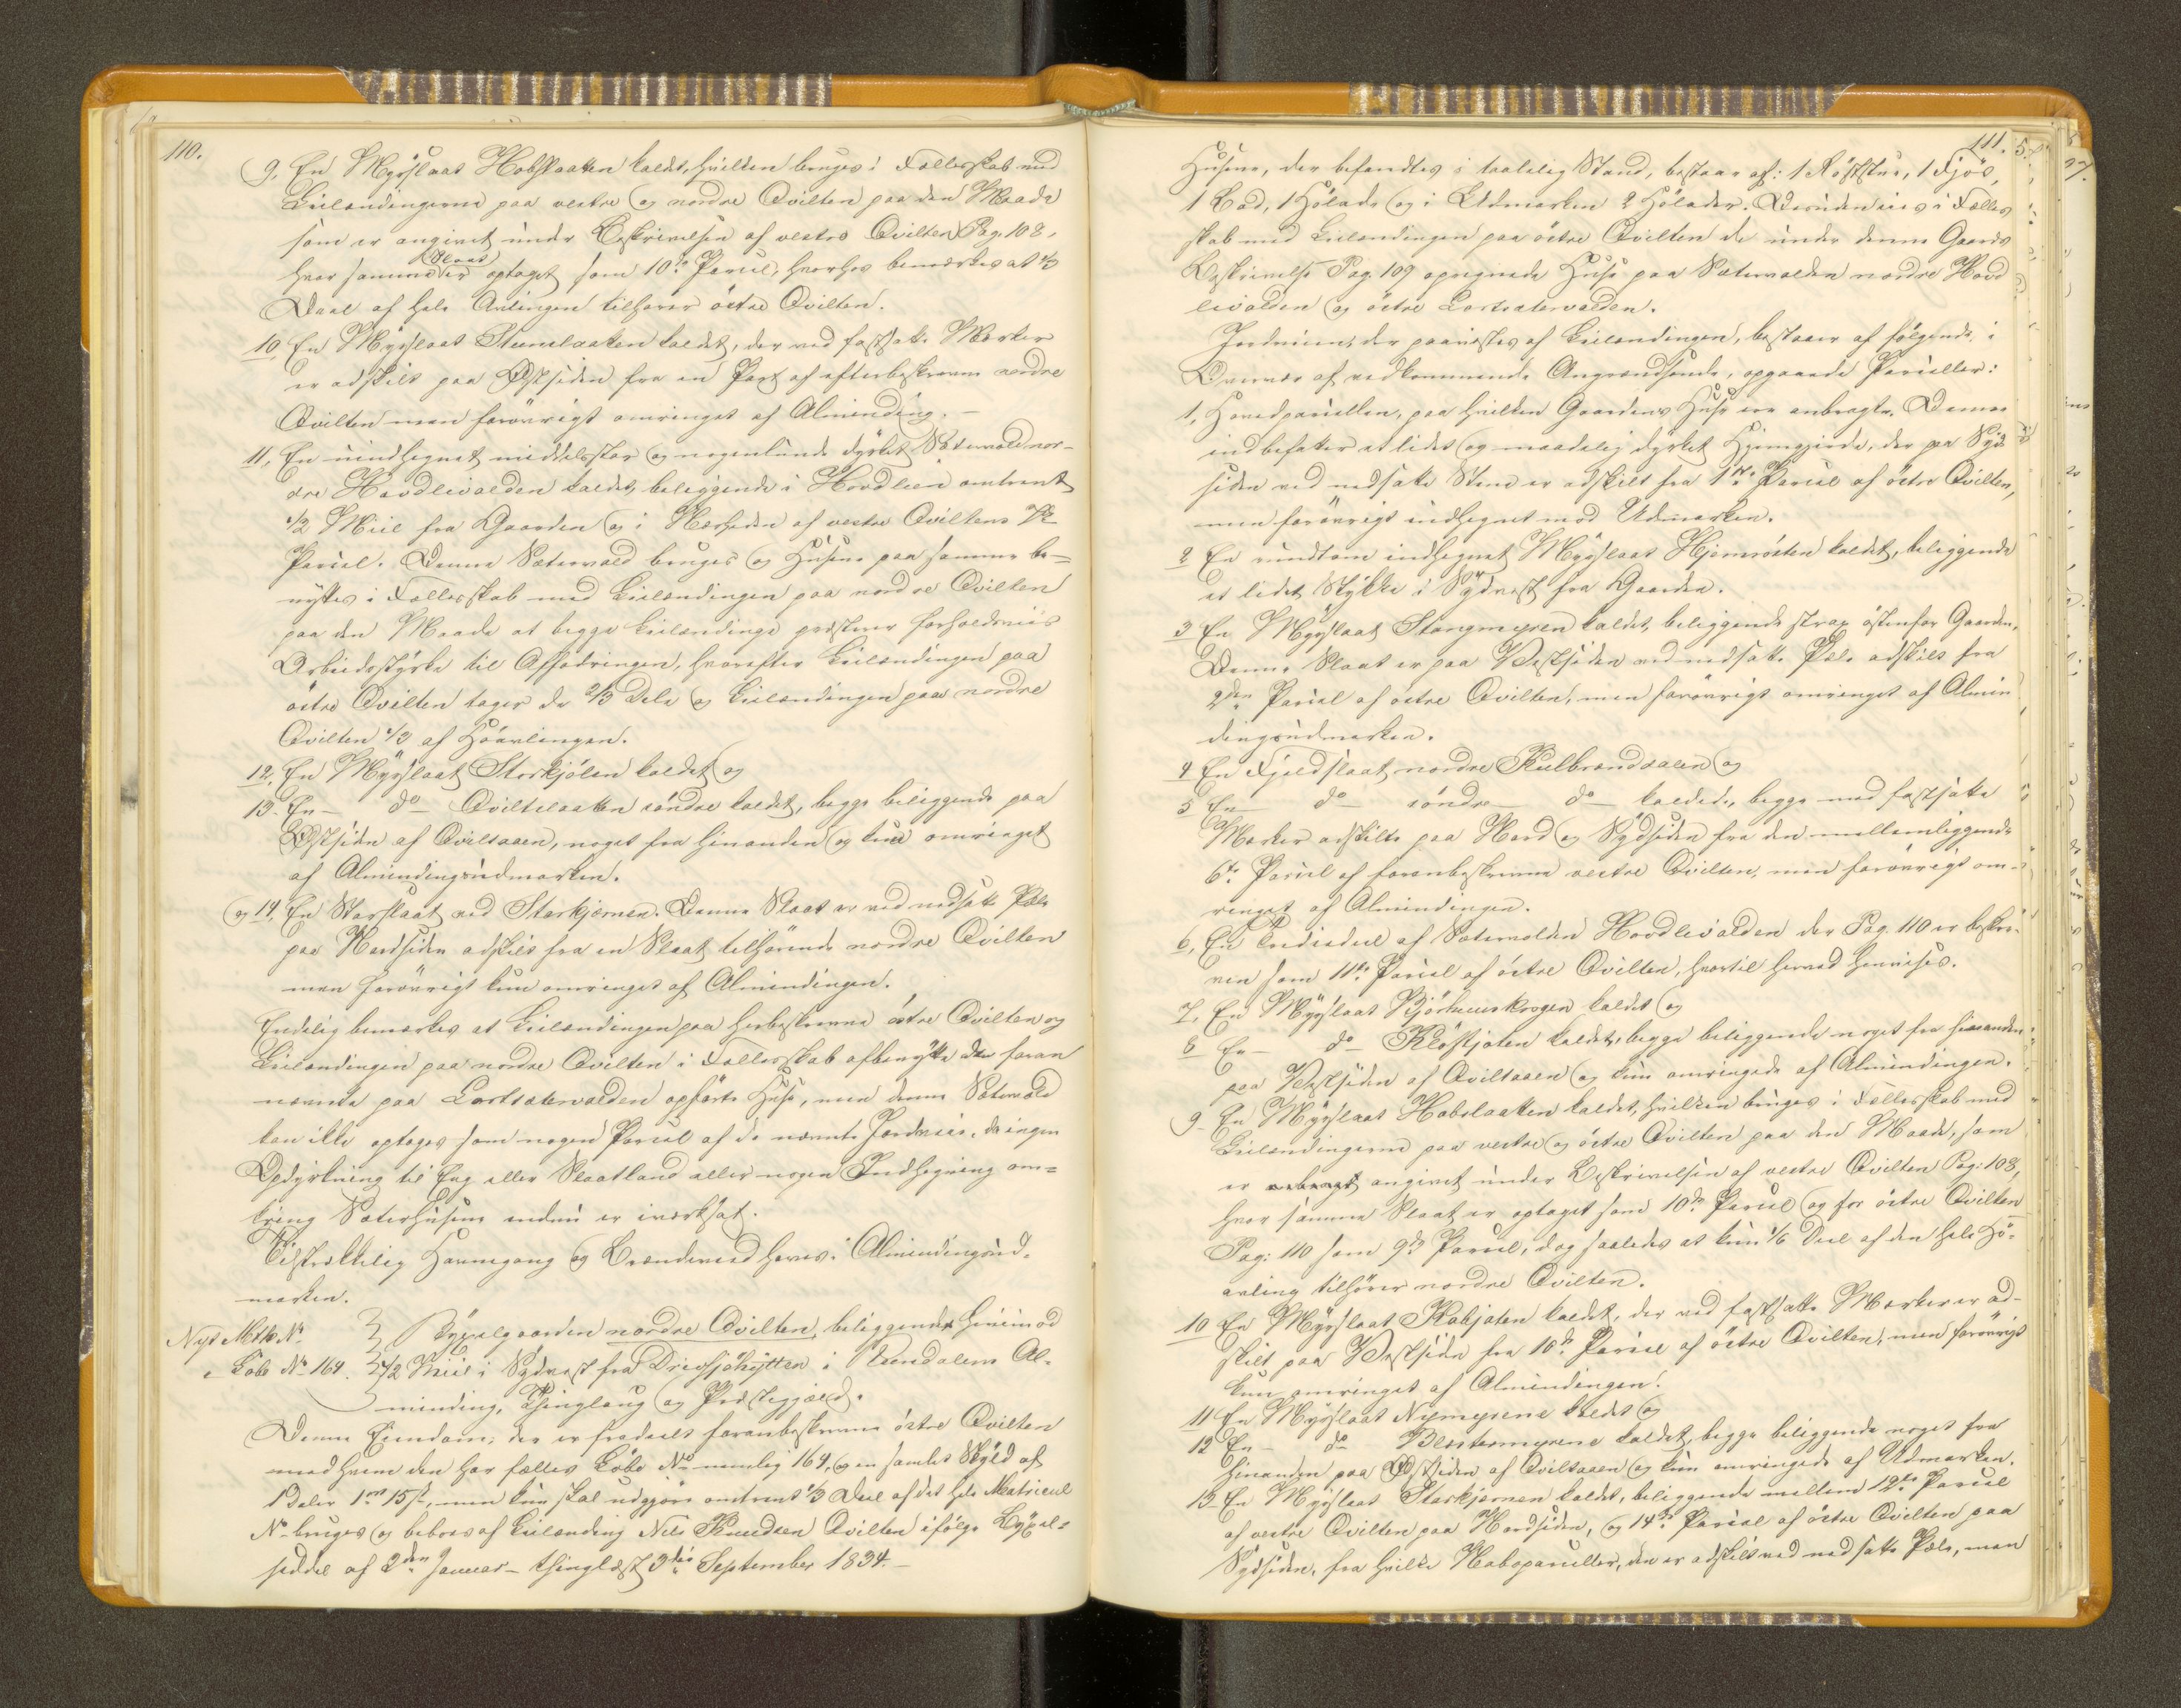 110.
9, En Myrslaat Hobslaatten kaldet, hvilken bruges i Fællesskab med
Leilændingerne paa vestre og nordre Qvilten paa den Maade
som er angivet under Beskrivelsen af vestre Qvilten Pag. 108,
hvor samme Slaat er optaget som 10de Parcel, hvorhos bemærkes at 1/3
Deel af hele Avlingen tilhører östre Qvilten.
10, En Myrslaat Steenslaatten kaldet, der ved fastsatte Mærker
er adskilt paa Østsiden fra en Part af efterbeskrevne nordre
Qvilten men forövrigt omringet af Alminding. –
11, En uindhegnet middelstor og nogenlunde dyrket Sætervold nor-
dre Hovdlivolden kaldet, beliggende i Hovdlien omtrent
1/2 Miil fra Gaarden og i Nærheden af vestre Qviltens 7de
Parcel. Denne Sætervold bruges og Husene paa samme be-
nyttes i Fællesskab med Leilændingen paa nordre Qvilten
paa den Maade at begge Leilændinge præsterer forholdsviis
Arbeidsstyrke til Affodringen, hvorefter Leilændingen paa
östre Qvilten tager de 2/3 Dele og Leilændingen paa nordre
Qvilten 1/3 af Höavlingen.
12, En Myrslaat Storkjölen kaldet og
13. En – do – Qviltslaatten söndre kaldet, begge beliggende paa
Østsiden af Qviltaaen, noget fra hinanden og kun omringet
af Almindingsudmarken.
og 14, En Starslaat ved Starkjærnen. Denne Slaat er ved nedsatte Pæle
paa Nordsiden adskilt fra en Slaat tilhörende nordre Qvilten
men forövrigt kun omringet af Almindingen.
Endelig bemærkes at Leilændingen paa herbeskrevne östre Qvilten og
Leilændingen paa nordre Qvilten i Fællesskab afbenytte de foran
nævnte paa Lortsætervolden opförte Huse, men denne Sætervold
kan ikke optages som nogen Parcel af de nævnte Jordveie, da ingen
Opdyrkning til Eng eller Slaatland eller nogen Indhegning om-
kring Sæterhusene endnu er iværksat.
Tilstrækkelig Havnegang og Brændeved haves i Almindingsud-
marken.
Nyt Mtr. No
" Löbe No 164. } Bÿgselgaarden nordre Qvilten, beliggende henimod
1/2 Miil i Sydvest fra Drevsjöhytten i Rendalens Al-
minding, Thinglaug og Præstegjæld.
Denne Eiendom, der er fradeelt foranbeskrevne östre Qvilten
med hvem den har fælles Löbe No nemlig 164, og en samlet Skyld af
1 Daler 1 ort 15 s, men kun skal udgjöre omtrent 1/3 Deel af det hele Matricul
No – bruges og beboes af Leilænding Nels Knudsen Qvilten ifölge Bÿgsel-
seddel af 2den Januar – thinglæst 3die September 1834. –
111.
Husene, der befandtes i taalelig Stand, bestaar af: 1 Röststue, 1 Fjös,
1 Bod, 1 Hölade og i Udmarken 2 Hölader. Desuden eies i Fælles
skab med Leilændingen paa östre Qvilten de under denne Gaards
Beskrivelse Pag. 109 opregnede Huse paa Sætervolden nordre Hovd
livolden og östre Lortsætervolden.
Jordveien, der paavistes af Leilændingen, bestaaer af fölgende, i
Overvær af vedkommende Angrændsende, opgaaede Parceller:
1, Hovedparcellen, paa hvilken Gaardens Huse ere anbragte. Denne
indbefatter et lidet og maadelig dyrket Hjemgjærde, der paa Syd
siden ved nedsatte Stene er adskilt fra 1ste Parcel af östre Qvilten,
men forövrigt indhegnet mod Udmarken.
2 En rundtom indhegnet Myrslaat Hjemrösten kaldet, beliggende
et lidet Stykke i Sydvest fra Gaarden.
3 En Myrslaat Stangmyren kaldet, beliggende strax östenfor Gaarden,
Denne Slaat er paa Vestsiden ved nedsatte Pæle adskilt fra
2den Parcel af östre Qvilten, men forövrigt omringet af Almin
dingsudmarken.
4 En Fjeldslaat nordre Kulbrændsaaen og
5 En – do – söndre – do – kaldede, begge med fastsatte
Mærker adskilte paa Nord og Sydsiden fra den mellemliggende
6te Parcel af foranbeskrevne vestre Qvilten, men forövrigt om-
ringet af Almindingen.
6, En Trediedeel af Sætervolden Hovdlivolden der Pag. 110 er beskre-
ven som 11te Parcel af östre Qvilten, hvortil herved henvises.
7, En Myrslaat Björneuskrogen kaldet og
8 En – do – Klöstjölen kaldet, begge beliggende noget fra hinanden
paa Vestsiden af Qviltaaen og kun omringede af Almindingen.
9 – En Myrslaat Hobslaatten kaldet, hvilken bruges i Fællesskab med
Leilændingerne paa vestre og östre Qvilten paa den Maade, som
er angivet under Beskrivelsen af vestre Qvilten Pag: 108,
hvor samme Slaat er optaget som 10de Parcel og for östre Qvilten
Pag: 110 som 9de Parcel, dog saaledes at kun 1/6 Deel af den hele Hö-
avling tilhörer nordre Qvilten.
10 En Myrslaat Kobjolen kaldet, der ved fastsatte Mærker er ad-
skilt paa Vestsiden fra 10de Parcel af östre Qvilten, men forövrigt
kun omringet af Almindingen.
11 En Myrslaat Nymyrene kaldet og
12 En – do – Blæstermyrene kaldet, begge beliggende noget fra
hinanden paa Østsiden af Qviltaaen og kun omringede af Udmarken.
13 En Myrslaat Starkjærnen kaldet, beliggende mellem 12te Parcel
af vestre Qvilten paa Nordsiden, og 14de Parcel af östre Qvilten paa
Sydsiden, fra hvilke Naboparceller, den er adskilt ved nedsatte Pæle, men